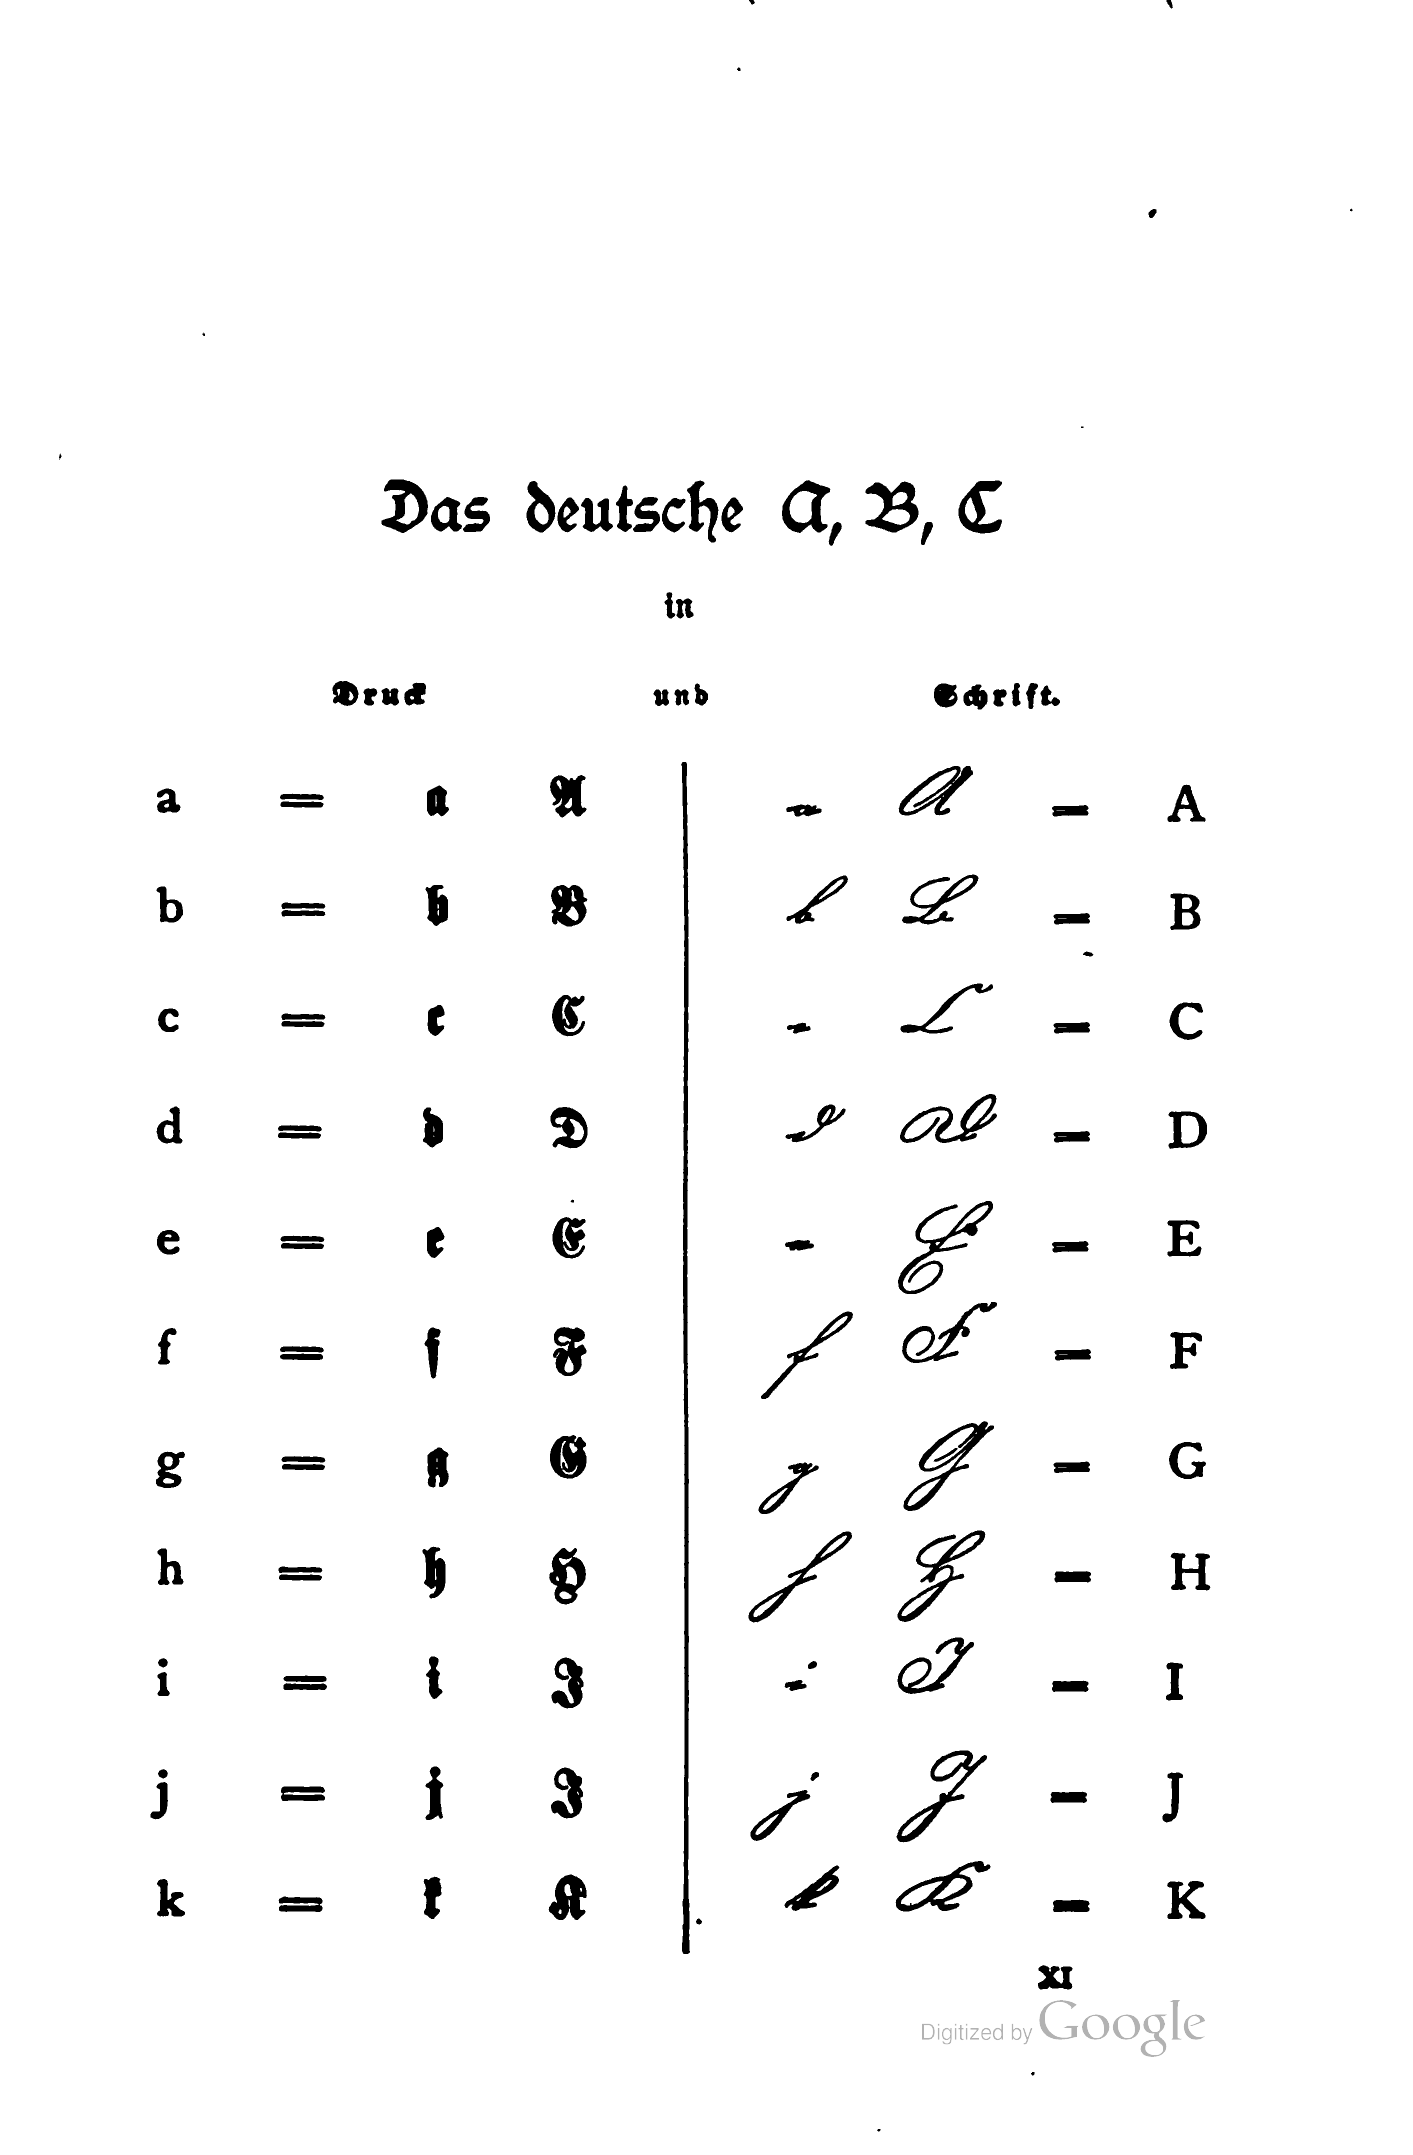 Das deutsche A, B, C
in
Druck und Schrift.
a = a A a A = A
b = b B b B = B
c = c C c C = C
d = d D d D = D
e = e E e E = E
f = f F f F = F
g = g G g G = G
h = h H h H = H
i = i I i I = I
j = j J j J = J
k = k K k K = K
XI
Digitized by Google